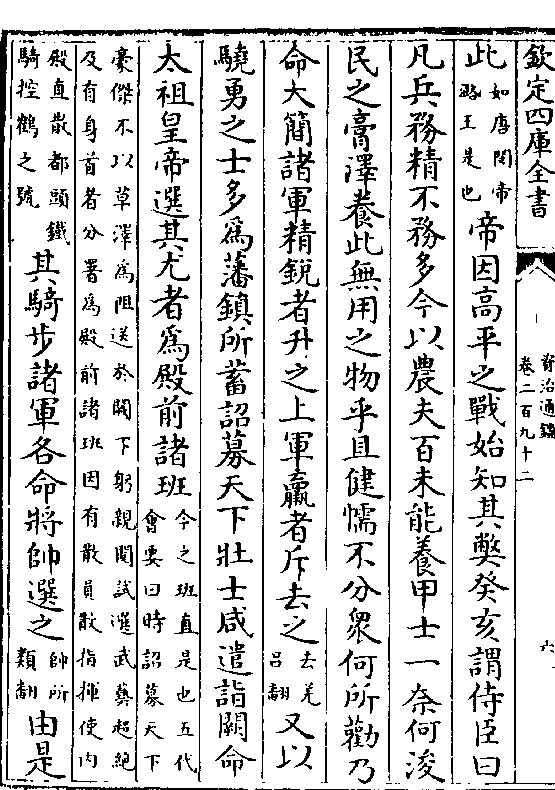 欽定四庫全書
資治通鑑
卷二百九十二
六
此如唐閔帝潞王是也帝因高平之戰始知其弊癸亥謂侍臣曰
凡兵務精不務多今以農夫百未能養甲士一奈何浚
民之膏澤養此無用之物乎且健懦不分衆何所勸乃
命大簡諸軍精銳者升之上軍羸者斥去之去羌呂翻又以
驍勇之士多為藩鎮所蓄詔募天下壯士咸遣詣闕命
太祖皇帝選其尤者為殿前諸班今之班直是也五代會要曰時詔募天下
豪傑不以草澤為阻送於闕下躬親閱試選武藝超絕及有身首者分署為殿前諸班因有散員散指揮使内
殿直散都頭鐵騎控鶴之號其騎步諸軍各命將帥選之帥所類翻由是